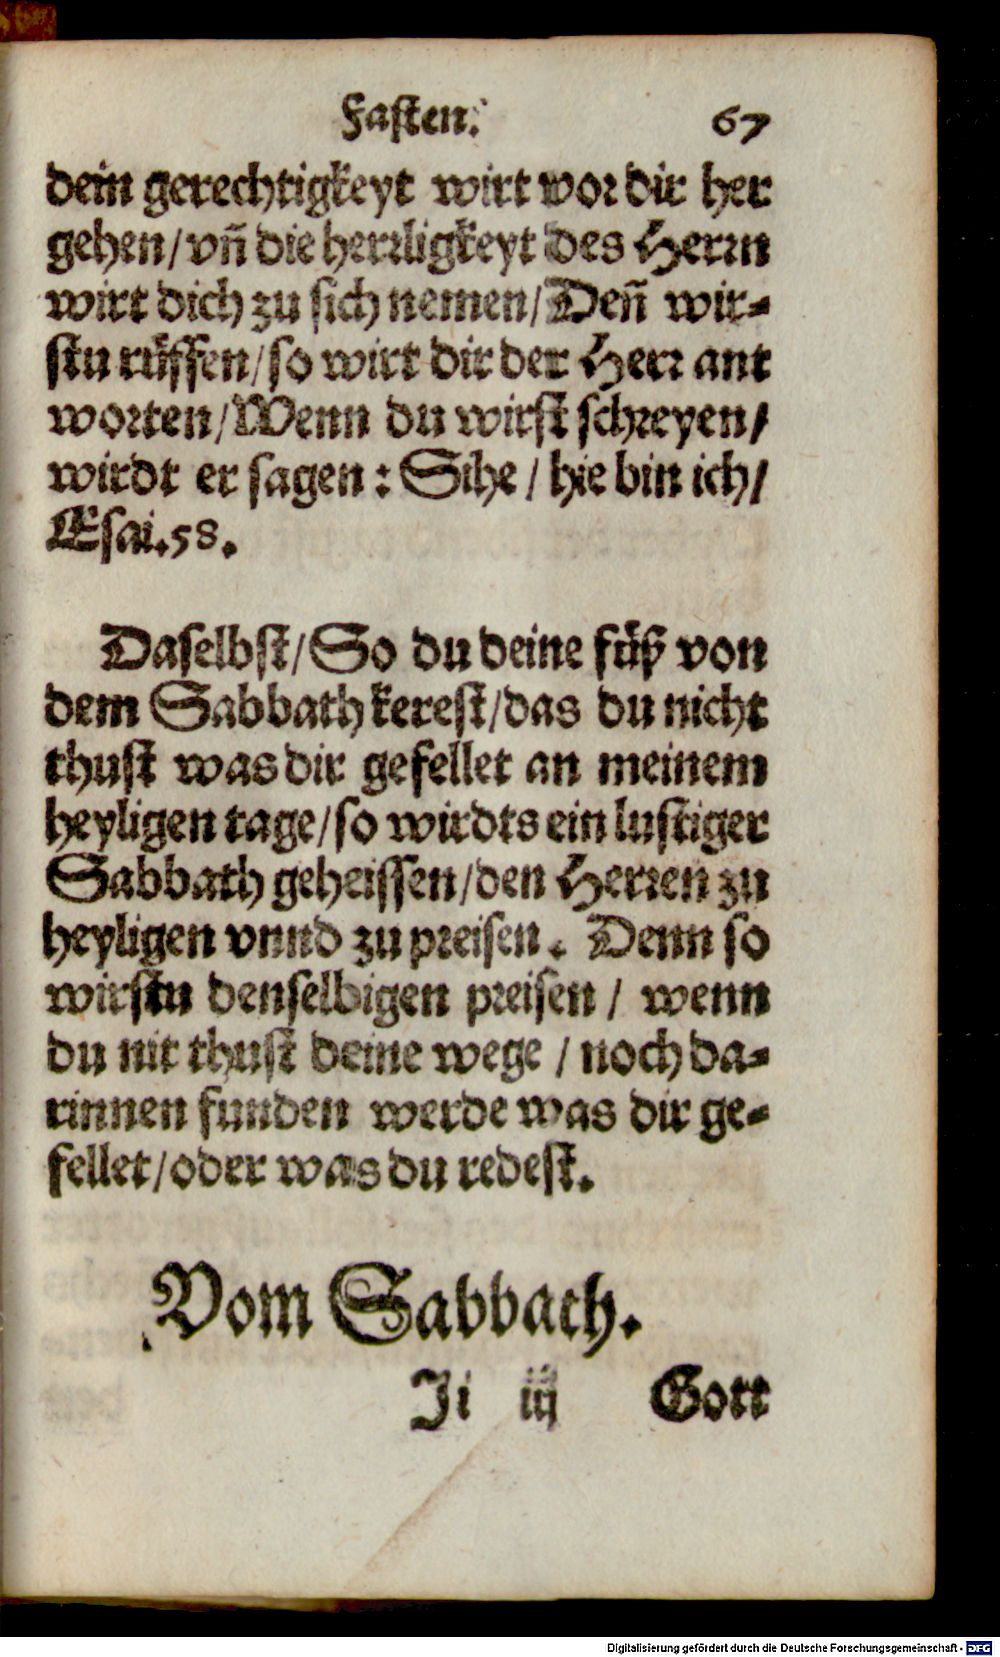 Fasten. 67
dein gerechtigkeyt wirt vor dir her
gehen/ vñ die herrligkeyt des Herrn
wirt dich zu sich nemen/ Deñ wir-
stu rüffen/ so wirt dir der Herr ant
worten/ Wenn du wirst schreyen/
wirdt er sagen: Sihe / hie bin ich/
Esai. 58.
Daselbst/ So du deine füß von
dem Sabbath kerest/ das du nicht
thust was dir gefellet an meinem
heyligen tage/ so wirdts ein lustiger
Sabbath geheissen/ den Herren zu
heyligen vnnd zu preisen. Denn so
wirstu denselbigen preisen / wenn
du nit thust deine wege / noch da-
rinnen funden werde was dir ge-
fellet/ oder was du redest.
Vom Sabbath.
Ji iij Gott
Digitalisierung gefördert durch die Deutsche Forschungsgemeinschaft - DFG